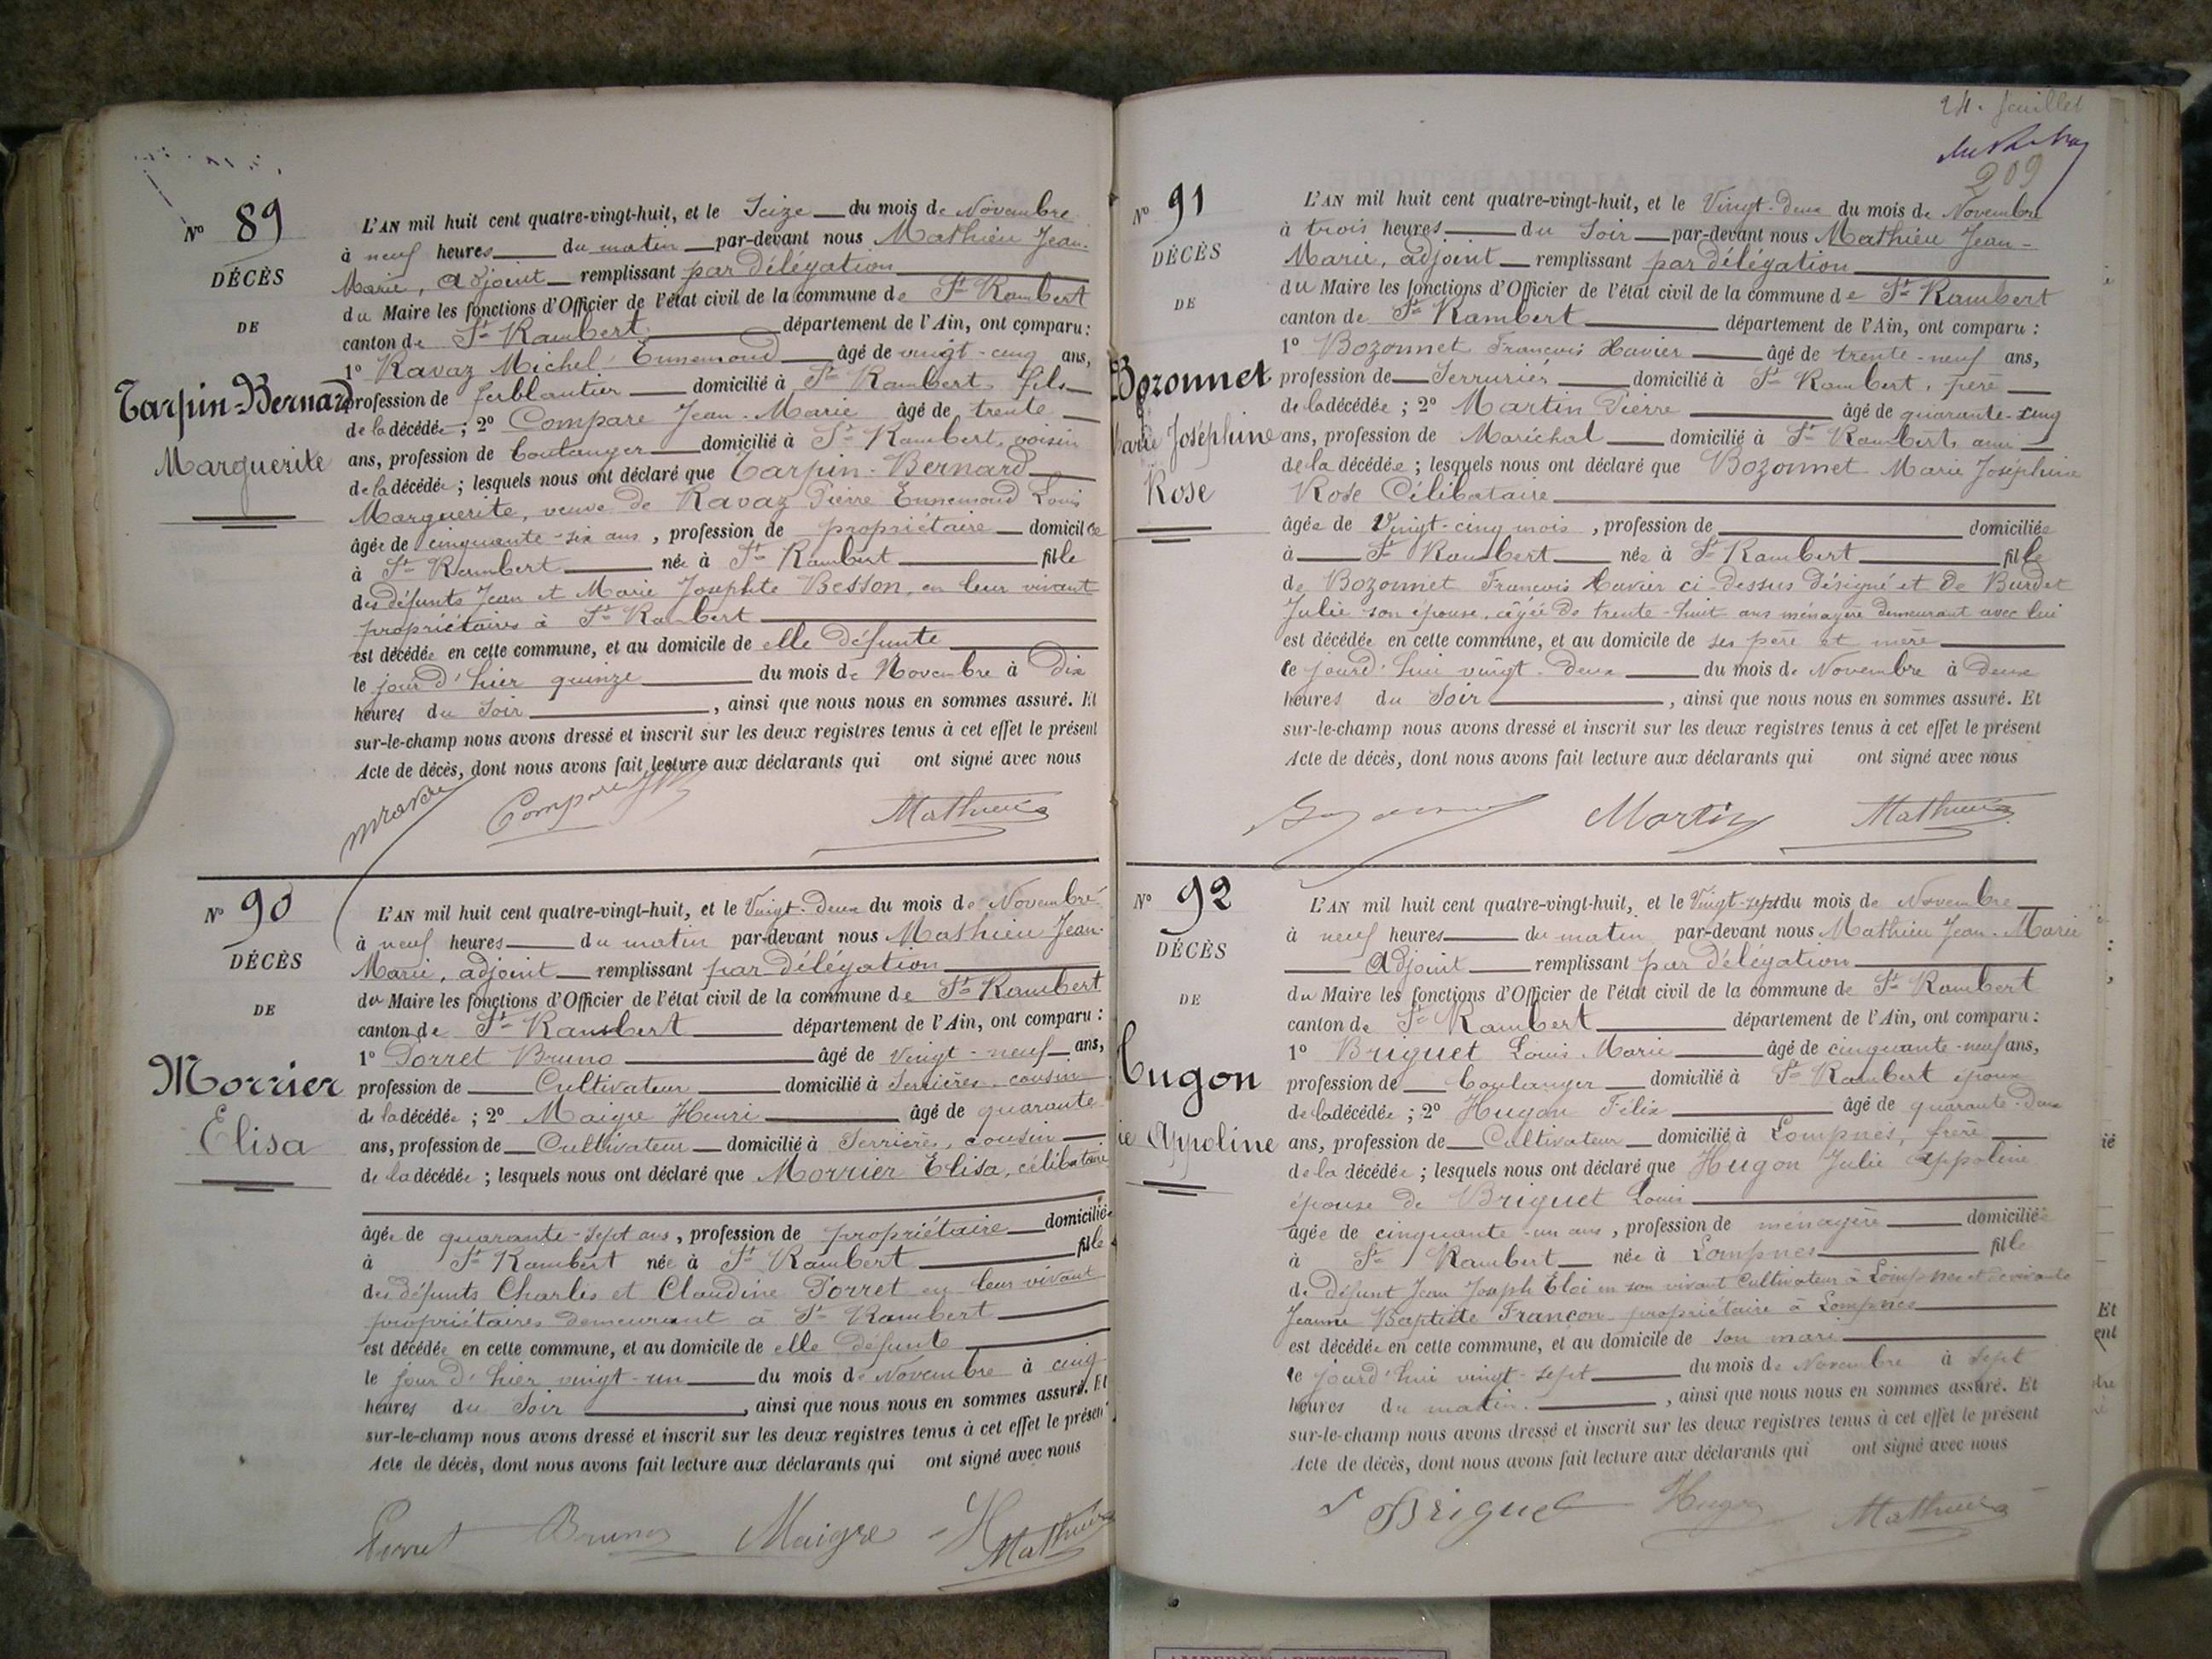 N° 89
DÉCÈS
DE
Tarpin-Bernard
Marguerite
L'AN mil huit cent quatre-vingt-huit, et le Seize du mois de Novembre
à neuf heures du matin par-devant nous Mathieu Jean-
Marie, adjoint remplissant par délégation
du Maire les fonctions d'Officier de l'état civil de la commune de St Rambert
canton de St Rambert département de l'Ain, ont comparu :
1° Ravaz Michel Ennemond âgé de vingt-cinq ans,
profession de ferblantier domicilié à St Rambert, fils
de la décédée ; 2° Compare Jean-Marie âgé de trente
ans, profession de boulanger domicilié à St Rambert, voisin
de la décédée ; lesquels nous ont déclaré que Tarpin-Bernard
Marguerite, veuve de Ravaz Pierre Ennemond Louis
âgée de cinquante-six ans, profession de propriétaire domiciliée
à St Rambert née à St Rambert fille
des défunts Jean et Marie Josephte Besson, en leur vivant
propriétaires à St Rambert
est décédée en cette commune, et au domicile de elle défunte
le jour d'hier quinze du mois de Novembre à dix
heures du Soir, ainsi que nous nous en sommes assuré. Et
sur-le-champ nous avons dressé et inscrit sur les deux registres tenus à cet effet le présent
Acte de décès, dont nous avons fait lecture aux déclarants qui ont signé avec nous
Mathieu
N° 90
DÉCÈS
DE
Morrier
Elisa
L'AN mil huit cent quatre-vingt-huit, et le Vingt-deux du mois de Novembre
à neuf heures du matin par-devant nous Mathieu Jean-
Marie, adjoint remplissant par délégation
du Maire les fonctions d'Officier de l'état civil de la commune de St Rambert
canton de St Rambert département de l'Ain, ont comparu :
1° Porret Bruno âgé de Vingt-neuf ans,
profession de Cultivateur domicilié à Serrières, cousin
de la décédée ; 2° Maigre Henri âgé de quarante
ans, profession de Cultivateur domicilié à Serrières, cousin
de la décédée ; lesquels nous ont déclaré que Morrier Elisa, célibataire
âgée de quarante-sept ans, profession de propriétaire domiciliée
à St Rambert née à St Rambert fille
des défunts Charles et Claudine Porret en leur vivant
propriétaires demeurant à St Rambert
est décédée en cette commune, et au domicile de elle défunte
le jour d'hier vingt-un du mois de Novembre à cinq
heures du Soir, ainsi que nous nous en sommes assuré. Et
sur-le-champ nous avons dressé et inscrit sur les deux registres tenus à cet effet le présent
Acte de décès, dont nous avons fait lecture aux déclarants qui ont signé avec nous
Porret Bruno Maigre H Mathieu
24. feuillet
209
N° 91
DÉCÈS
DE
Bozonnet
Marie Joséphine
Rose
L'AN mil huit cent quatre-vingt-huit, et le Vingt-deux du mois de Novembre
à trois heures du Soir par-devant nous Mathieu Jean-
Marie, adjoint remplissant par délégation
du Maire les fonctions d'Officier de l'état civil de la commune de St Rambert
canton de St Rambert département de l'Ain, ont comparu :
1° Bozonnet François Xavier âgé de trente-neuf ans,
profession de Serrurier domicilié à St Rambert, père
de la décédée ; 2° Martin Pierre âgé de quarante-cinq
ans, profession de Maréchal domicilié à St Rambert, ami
de la décédée ; lesquels nous ont déclaré que Bozonnet Marie Joséphine
Rose Célibataire
âgée de Vingt-cinq mois, profession de domiciliée
à St Rambert née à St Rambert fille
de Bozonnet François Xavier ci-dessus désigné et de Burdet
Julie son épouse, âgée de trente-huit ans ménagère demeurant avec lui
est décédée en cette commune, et au domicile de ses père et mère
le jourd'hui vingt-deux du mois de Novembre à deux
heures du Soir, ainsi que nous nous en sommes assuré. Et
sur-le-champ nous avons dressé et inscrit sur les deux registres tenus à cet effet le présent
Acte de décès, dont nous avons fait lecture aux déclarants qui ont signé avec nous
Martin Mathieu
N° 92
DÉCÈS
DE
Hugon
ie Appoline
L'AN mil huit cent quatre-vingt-huit, et le Vingt-sept du mois de Novembre
à neuf heures du matin par-devant nous Mathieu Jean-Marie
Adjoint remplissant par délégation
du Maire les fonctions d'Officier de l'état civil de la commune de St Rambert
canton de St Rambert département de l'Ain, ont comparu :
1° Briguet Louis Marie âgé de cinquante-neuf ans,
profession de boulanger domicilié à St Rambert époux
de la décédée ; 2° Hugon Félix âgé de quarante-deux
ans, profession de Cultivateur domicilié à Lompnes, frère
de la décédée ; lesquels nous ont déclaré que Hugon Julie Appoline
épouse de Briguet Louis
âgée de cinquante-un ans, profession de ménagère domiciliée
à St Rambert née à Lompnes fille
de défunt Jean Joseph Eloi en son vivant Cultivateur à Lompnes et de vivante
Jeanne Baptiste Françon propriétaire à Lompnes
est décédée en cette commune, et au domicile de son mari
le jourd'hui vingt-sept du mois de Novembre à sept
heures du matin, ainsi que nous nous en sommes assuré. Et
sur-le-champ nous avons dressé et inscrit sur les deux registres tenus à cet effet le présent
Acte de décès, dont nous avons fait lecture aux déclarants qui ont signé avec nous
Briguet Hugon Mathieu